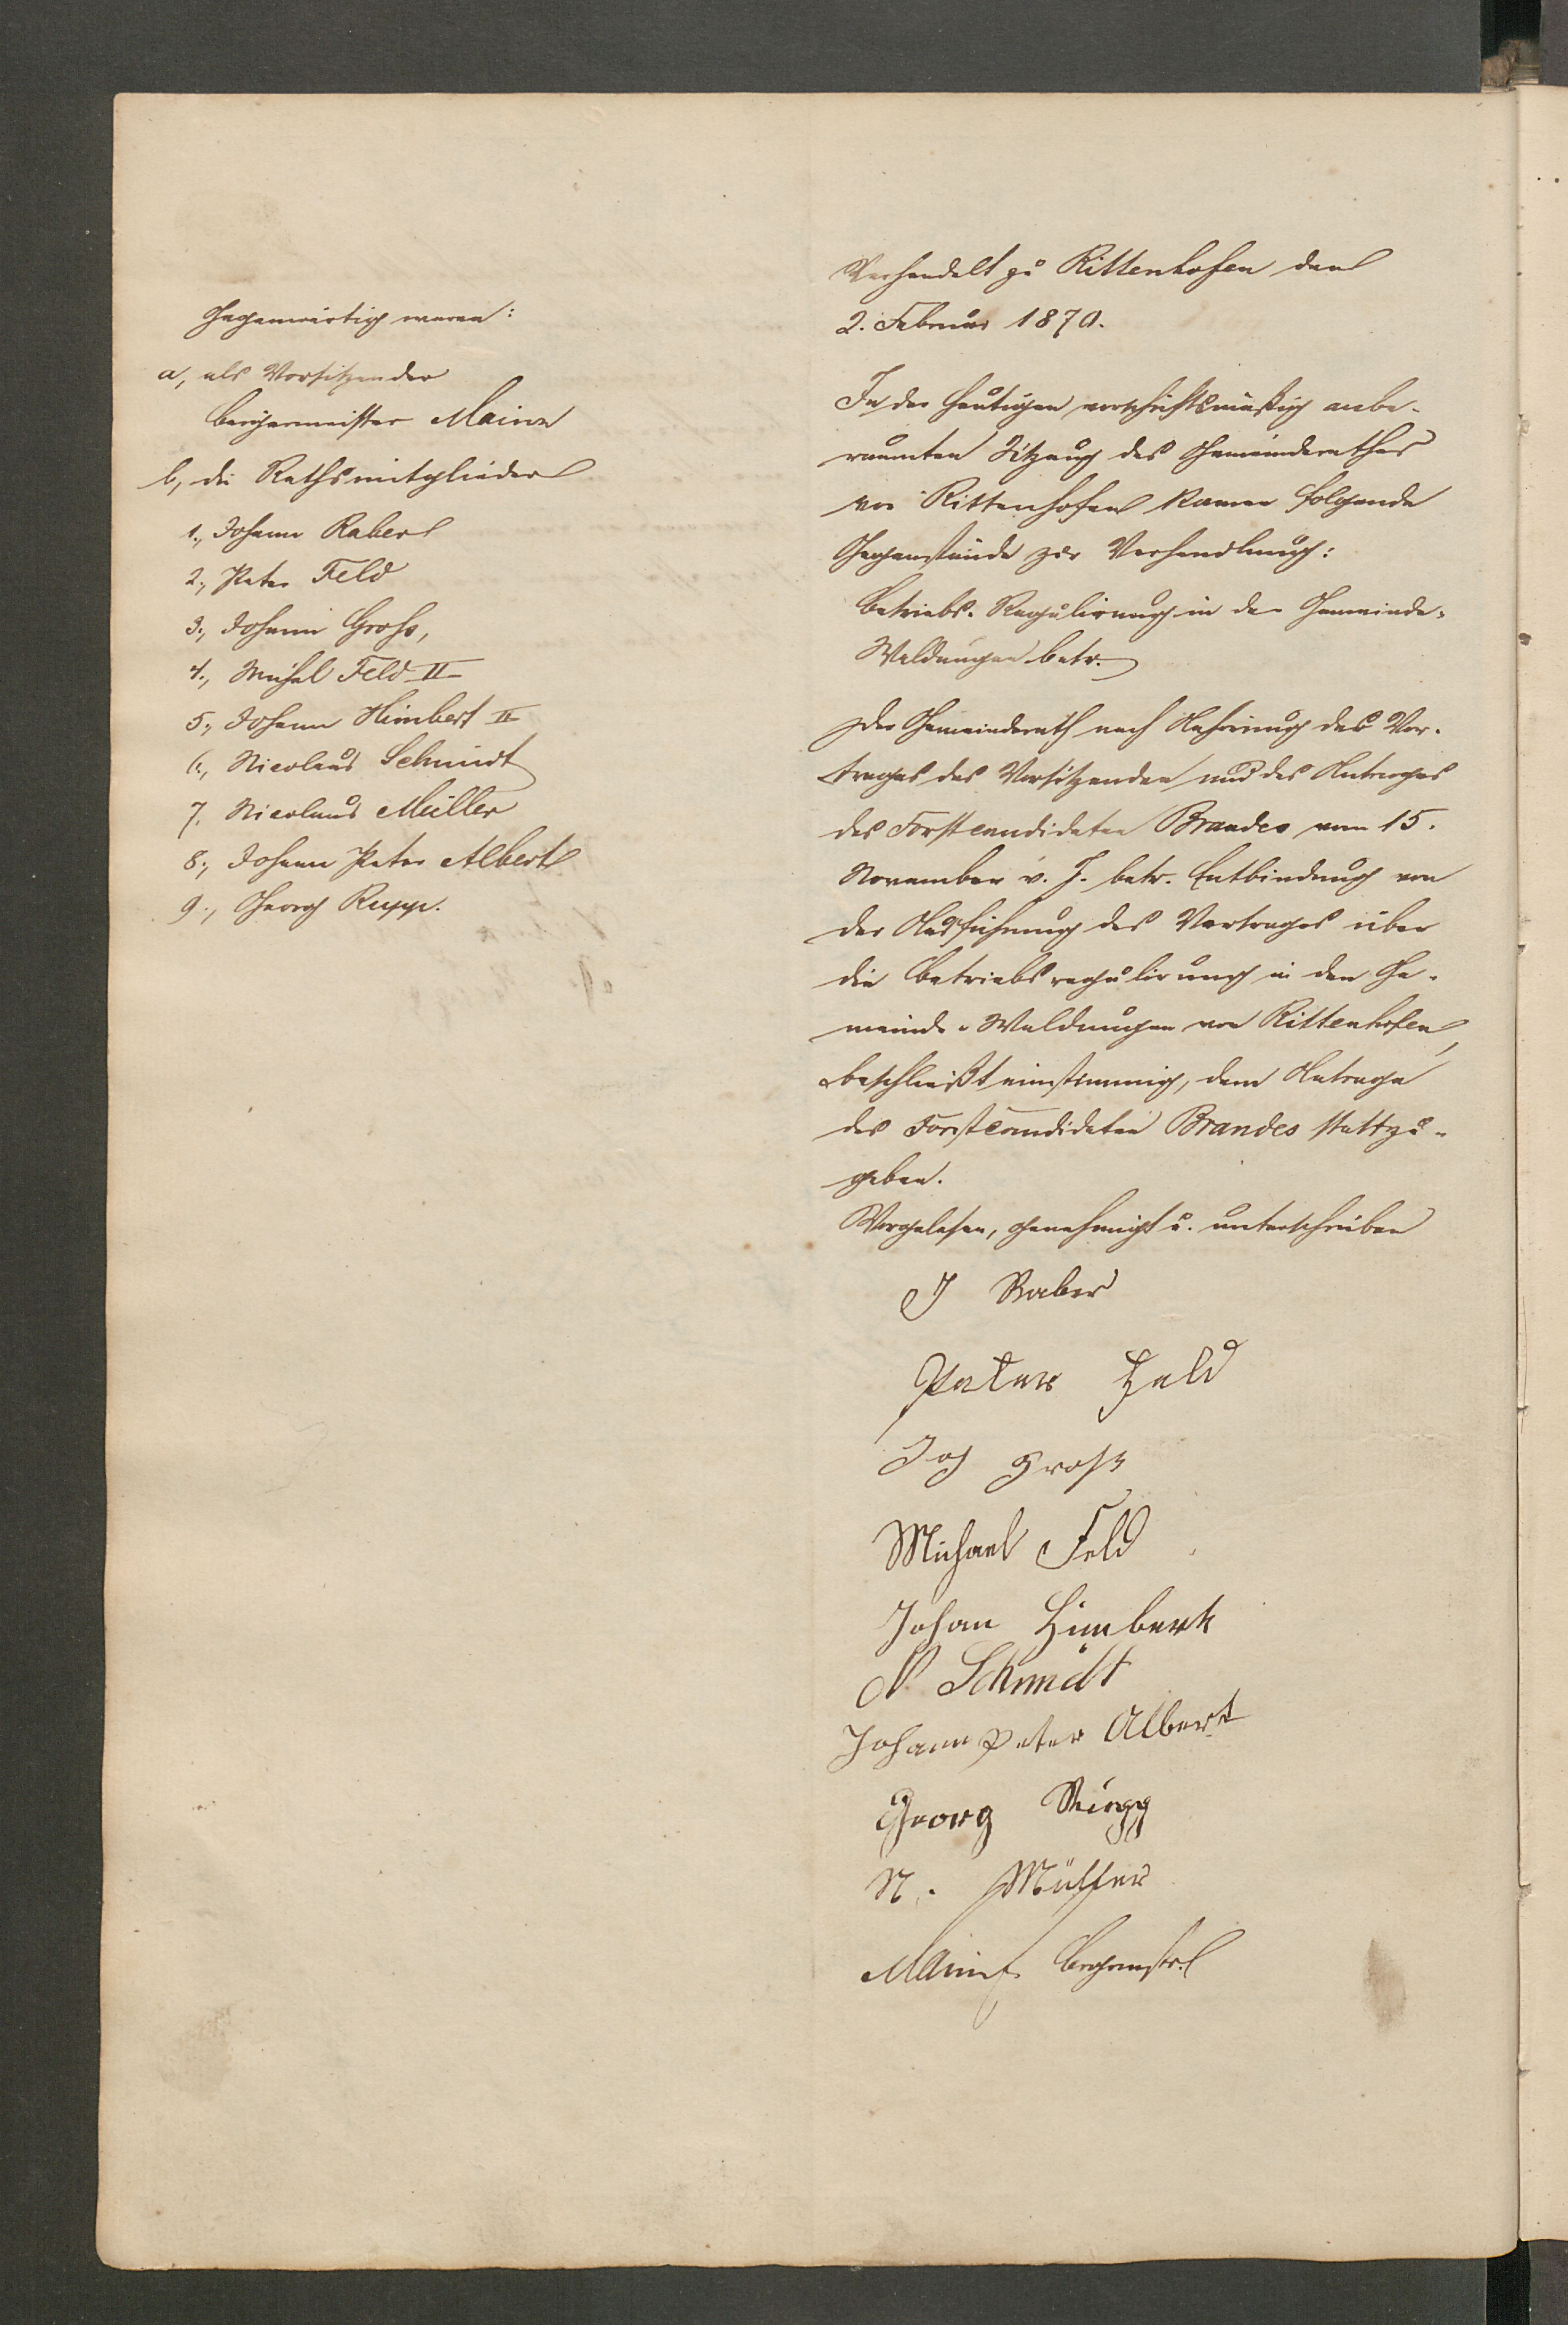 Gegenwärtig waren:
a, als Vorsitzender
Bürgermeister Mainz
b, die Rathsmitglieder
1., Johann Raber
2., Peter Feld
3., Johann Groß,
4., Michel Feld II
5., Johann Himbert II
6., Nicolaus Schmidt
7. Nicolaus Müller
8., Johann Peter Albert
9., Georg Rupp.
Verhandelt zu Rittenhofen den
2. Februar 1870.
In der heutigen vorschriftsmäßig anbe-
raumten Sitzung des Gemeinderathes
von Rittenhofen kamen folgende
Gegenstände zur Verhandlung:
Betriebs-Regulirung in den Gemeinde-
Waldungen betr.
Der Gemeinderath nach Anhörung des Vor-
trages des Vorsitzenden und des Antrages
des Forstcandidaten Brandes vom 15.
November v. J. betr. Entbindung von
der Ausführung des Vertrages über
die Betriebsregulirung in den Ge-
meinde-Waldungen von Rittenhofen,
beschließt einstimmig, dem Antrage
des Forstcandidaten Brandes stattzu-
geben.
Vorgelesen, genehmigt u. unterschrieben
J Raber
Peter Feld
Joh Groß
Michael Feld
Johan Himbert
N Schmidt
Johann Peter Albert
Georg Rupp
N. Müller
Mainz Bürgermstr.